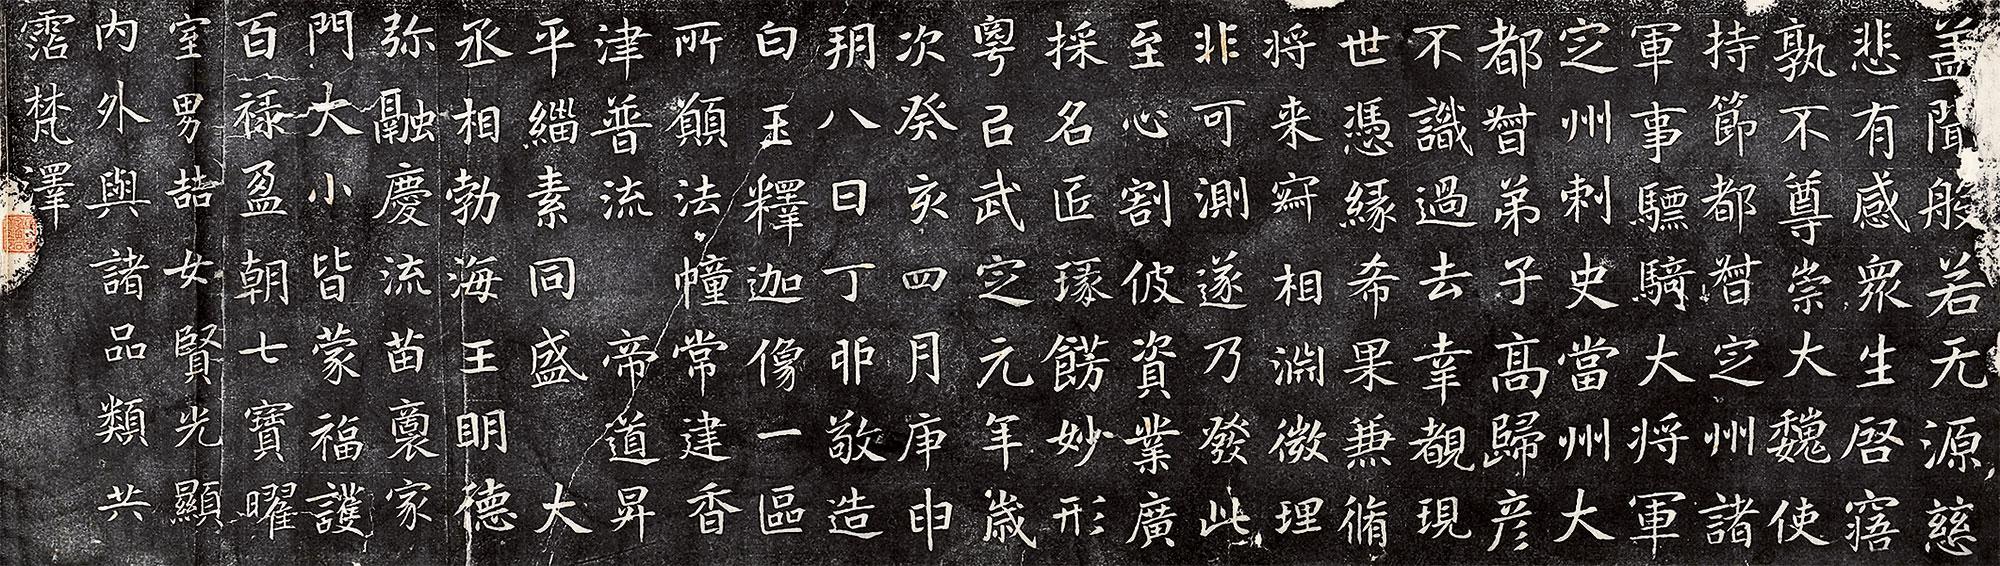 盖聞般若无源慈
悲有感眾生啓寤
孰不尊崇大魏使
持節都督定州諸
軍事驃騎大將軍
定州刺史當州大
都督弟子高歸彦
不識過去幸覩現
世憑緣希果兼脩
将来冥相渊微理
非可測遂乃發此
至心割彼資業廣
採名匠琢餝妙形
粤己武定元年歲
次癸亥四月庚申
朔八日丁卯敬造
白玉釋迦像一區
所願法幢常建香
津普流 帝道昇
平緇素同盛 大
丞相勃海王明德
弥融慶流苗裔家
門大小皆蒙福護
百禄盈朝七寶曜
室男喆女賢光顯
内外與諸品類共
霑梵澤